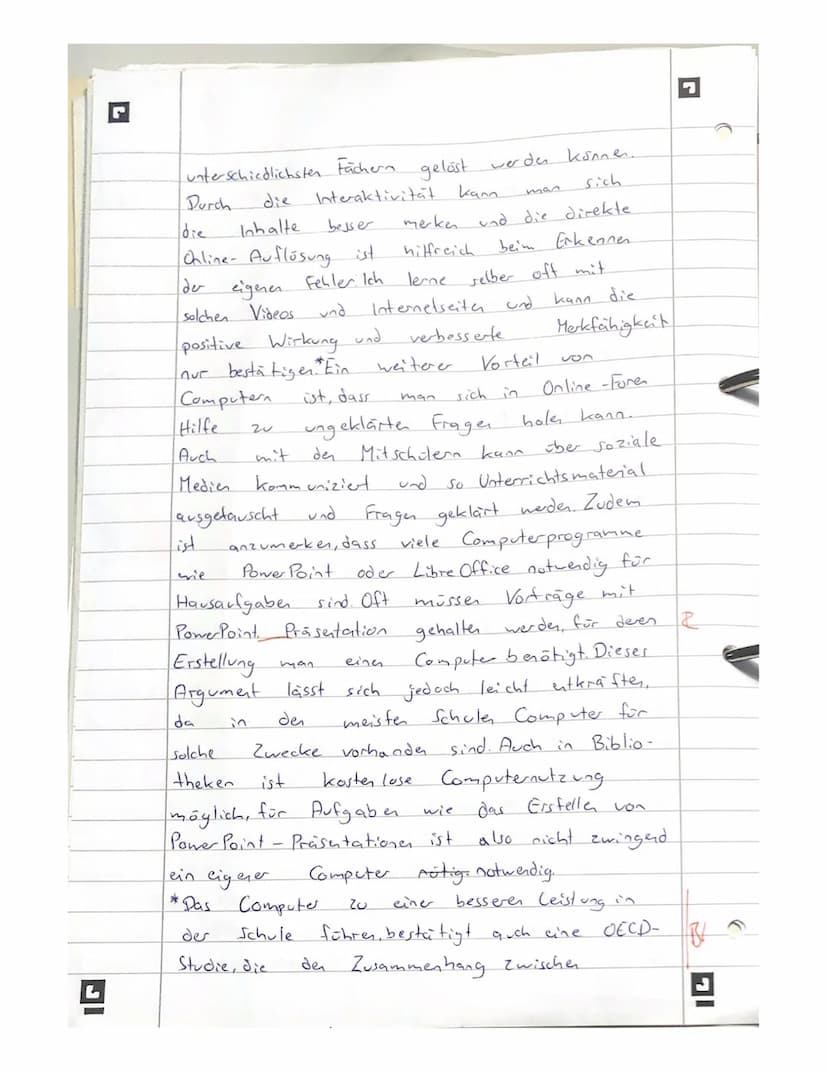 unterschiedlichsten Fächern gelöst werden können.
Durch die Interaktivität kann man sich
die Inhalte besser merken und die direkte
Online-Auflösung ist hilfreich beim Erkennen
der eigenen Fehler. Ich lerne selber oft mit
solchen Videos und Internetseiten und kann die
positive Wirkung und verbesserte Merkfähigkeit
nur bestätigen.*Ein weiterer Vorteil von
Computern ist, dass man sich in Online-Foren
Hilfe zu ungeklärten Fragen holen kann.
Auch mit den Mitschülern kann über soziale
Medien kommuniziert und so Unterrichtsmaterial
ausgetauscht und Fragen geklärt werden. Zudem
ist anzumerken, dass viele Computerprogramme
wie PowerPoint oder LibreOffice notwendig für
Hausaufgaben sind. Oft müssen Vorträge mit
PowerPoint Präsentation gehalten werden, für deren R
Erstellung man einen Computer benötigt. Dieses
Argument lässt sich jedoch leicht entkräften,
da in den meisten Schulen Computer für
solche Zwecke vorhanden sind. Auch in Biblio-
theken ist kostenlose Computernutzung
möglich, für Aufgaben wie das Erstellen von
PowerPoint-Präsentationen ist also nicht zwingend
ein eigener Computer nötig. notwendig.
*Das Computer zu einer besseren Leistung in
der Schule führen, bestätigt auch eine OECD-
Studie, die den Zusammenhang zwischen